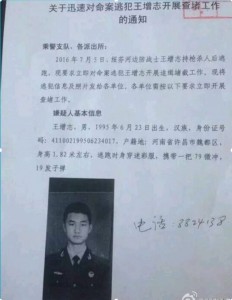 关于迅速对命案逃犯王增志开展查堵工作
的通知
乘警支队、各派出所:
2016年7月5日,绥芬河边防战士王增志持枪杀人后逃
跑,现要求立即对命案逃犯王增志开展追缉堵截工作,现将
逃犯信息及照片发给各单位,各单位需按以下要求立即开展
查堵工作。
嫌疑人基本信息
王增志,男,1995年6月23日出生,汉族,身份证号
码: 户籍地:河南省许昌市魏都区,
身高1.82米左右,逃跑时身穿迷彩服,携带一把79微冲,
19发子弹
电话